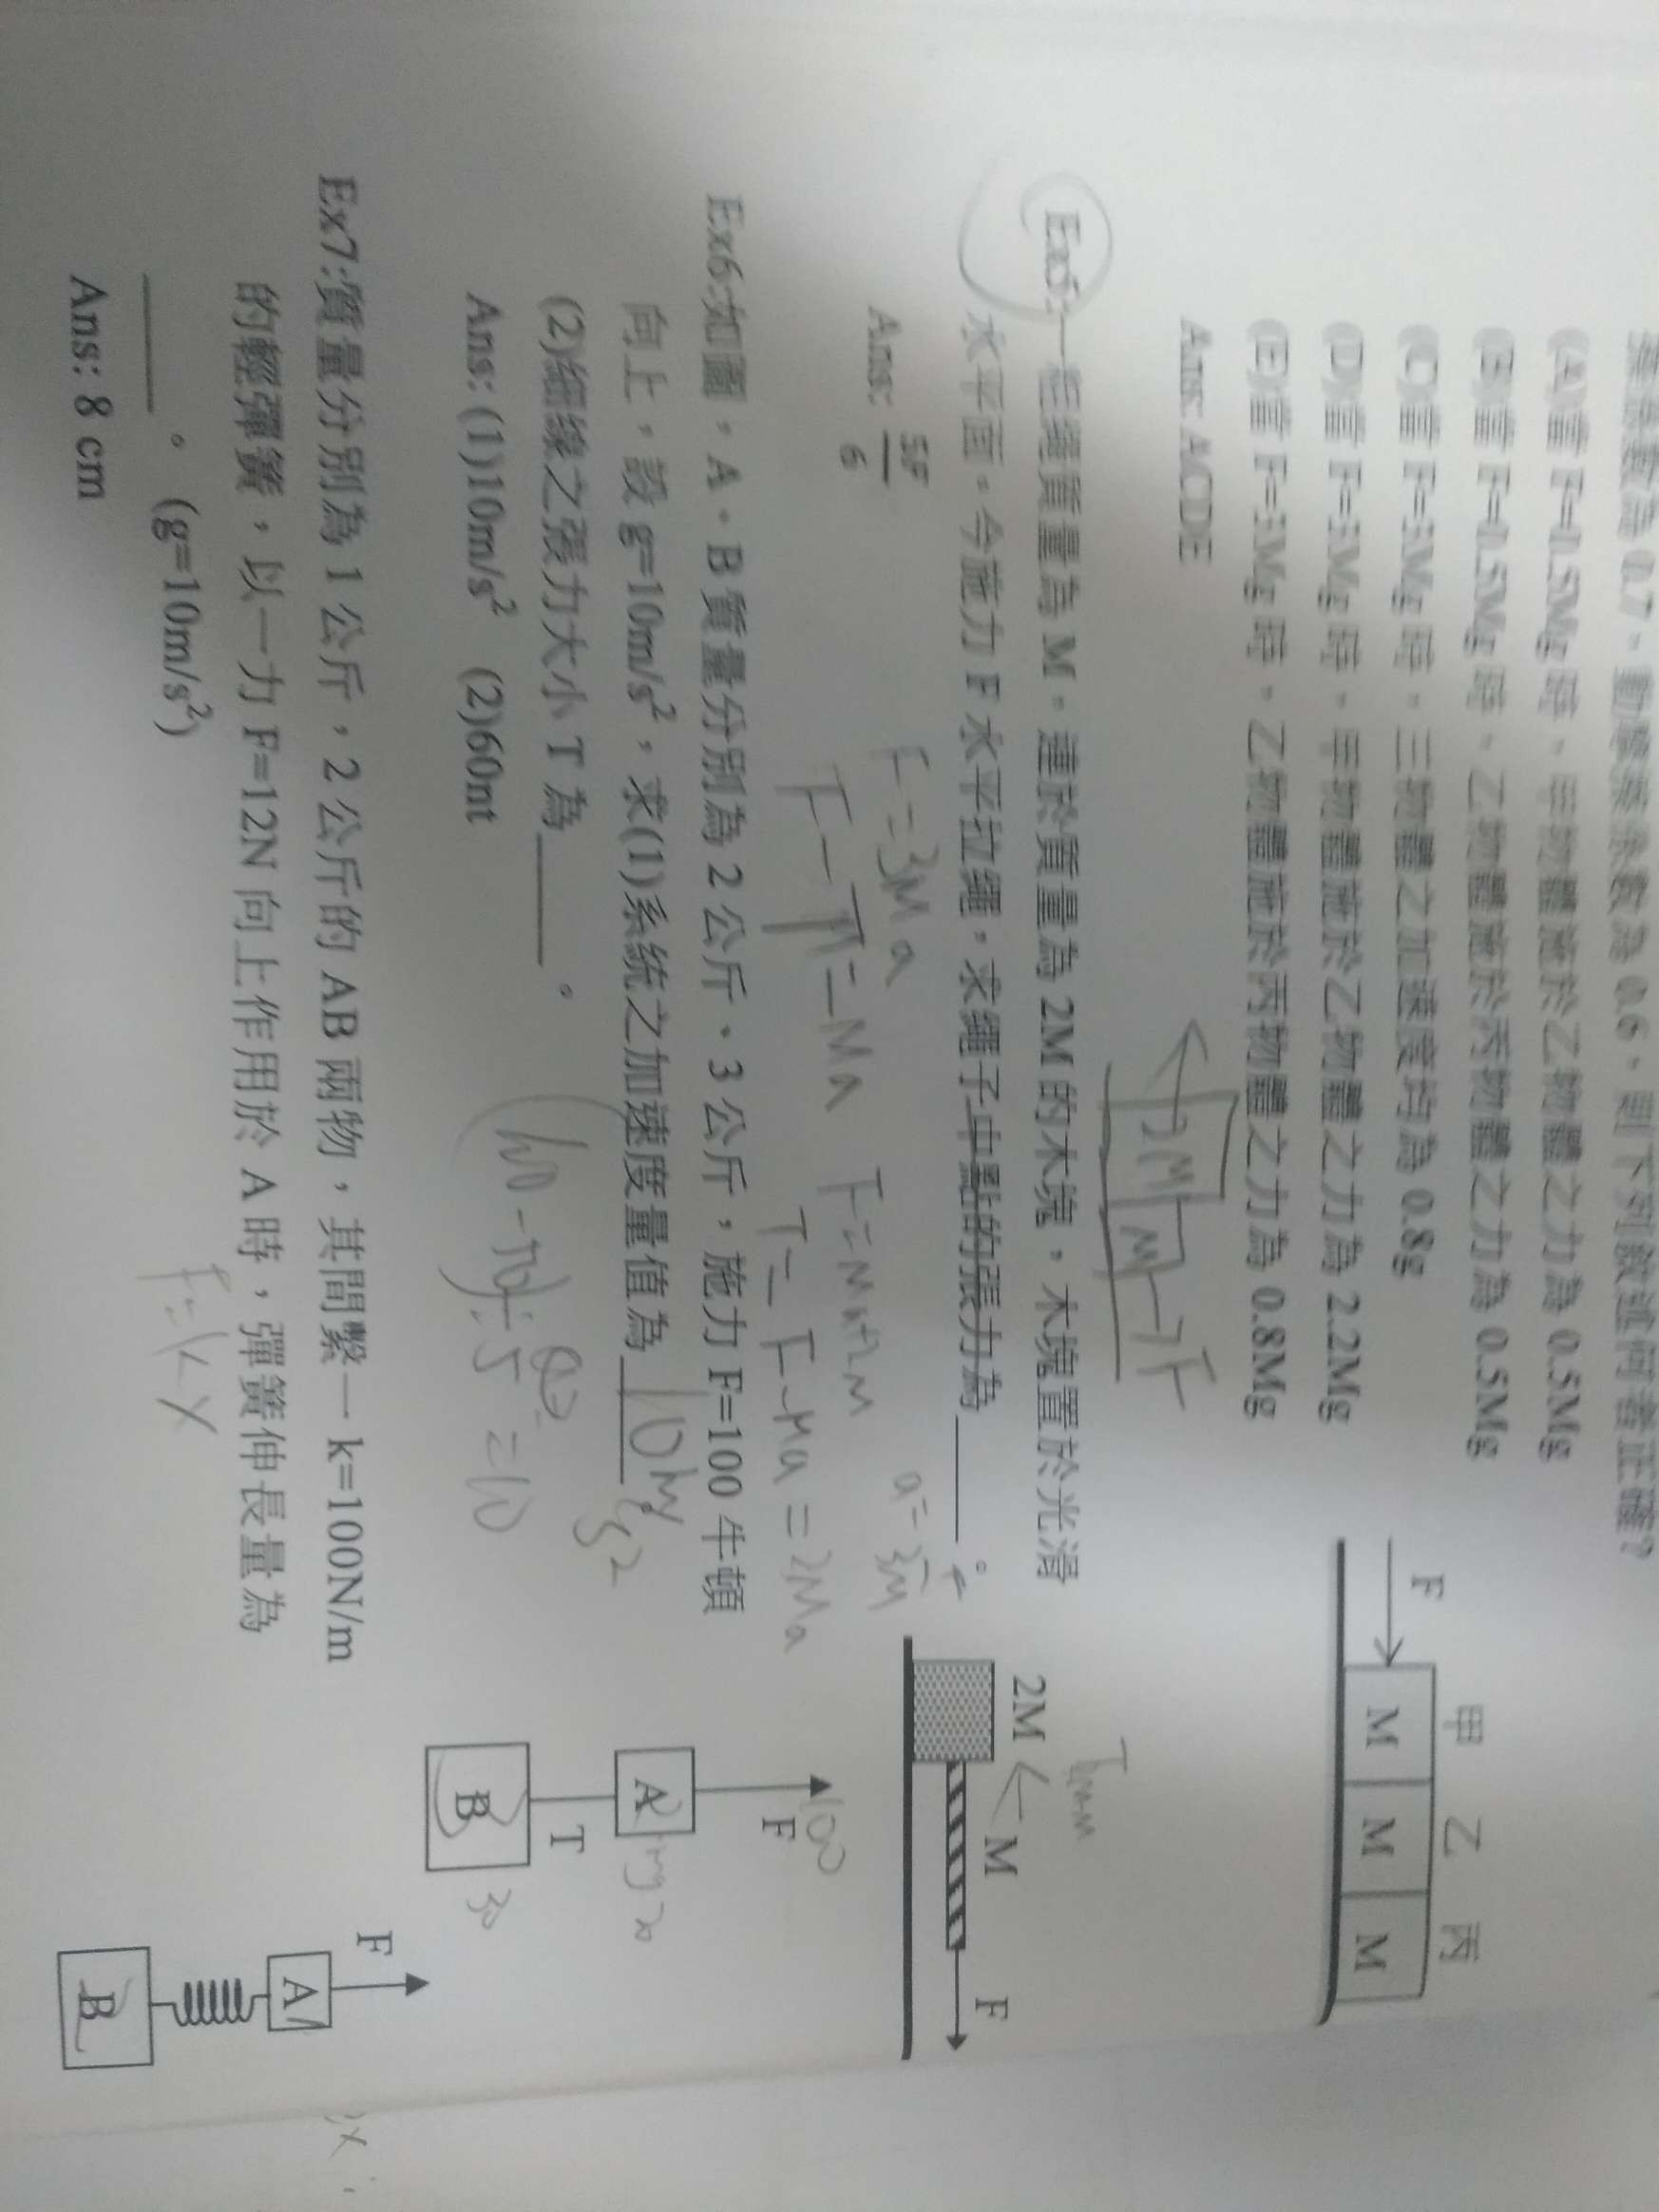 擦係數為 0.7，動摩擦係數為 0.6，則下列敘述何者正確？
(A)當 F=1.5Mg 時，甲物體施於乙物體之力為 0.5Mg
(B)當 F=1.5Mg 時，乙物體施於丙物體之力為 0.5Mg
(C)當 F=3Mg 時，三物體之加速度均為 0.8g
(D)當 F=3Mg 時，甲物體施於乙物體之力為 2.2Mg
(E)當 F=3Mg 時，乙物體施於丙物體之力為 0.8Mg
Ans: ACDE
F
甲 乙 丙
M M M
2M M F
Ex5:一粗繩質量為 M，連於質量為 2M 的木塊，木塊置於光滑
水平面，今施力 F 水平拉繩，求繩子中點的張力為______。
Ans: 5F/6
2M M
F
F=3Ma
a=F/3M
F-T=Ma
T=F-Ma=2Ma
Ex6:如圖，A、B 質量分別為 2 公斤、3 公斤，施力 F=100 牛頓
向上，設 g=10m/s²，求(1)系統之加速度量值為 10m/s²
(2)細線之張力大小 T 為______。
Ans: (1)10m/s² (2)60nt
÷5=10
100
F
A
mg 20
T
B
30
Ex7:質量分別為 1 公斤，2 公斤的 AB 兩物，其間繫一 k=100N/m
的輕彈簧，以一力 F=12N 向上作用於 A 時，彈簧伸長量為
______。(g=10m/s²)
F=kx
Ans: 8 cm
F
A
B